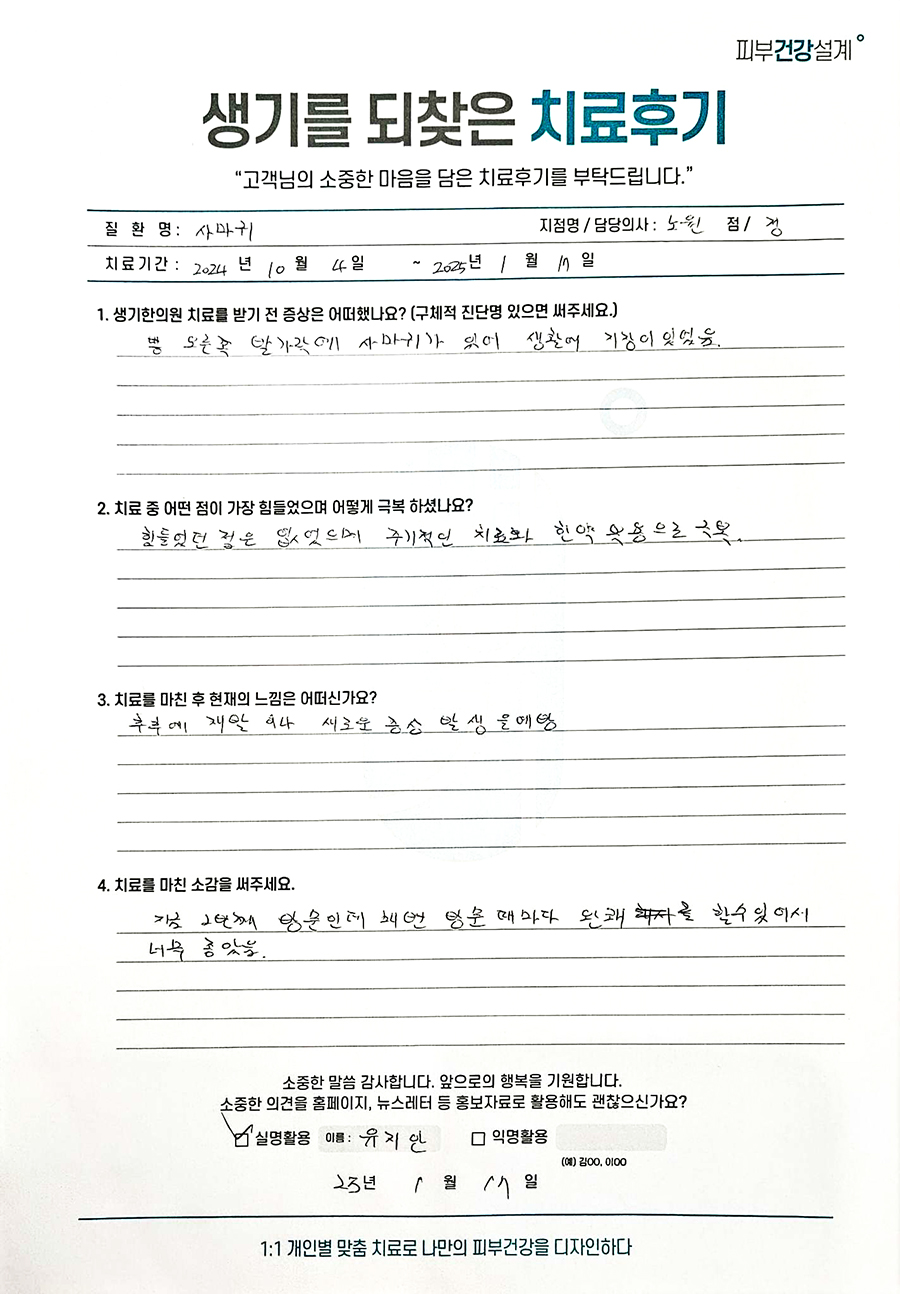 피부건강설계
생기를 되찾은 치료후기
“고객님의 소중한 마음을 담은 치료후기를 부탁드립니다.”
질 환 명 : 사마귀 지점명 / 담당의사 : 노원 점 / 정
치료기간 : 2024 년 10 월 4 일 ~ 2025 년 1 월 17 일
1. 생기한의원 치료를 받기 전 증상은 어떠했나요? (구체적 진단명 있으면 써주세요.)
오른쪽 발가락에 사마귀가 있어 생활에 지장이 있었음.
2. 치료 중 어떤 점이 가장 힘들었으며 어떻게 극복 하셨나요?
힘들었던 점은 없었으며 주기적인 치료와 한약 복용으로 극복.
3. 치료를 마친 후 현재의 느낌은 어떠신가요?
추후에 재발 이나 새로운 증상 발생 을 예방
4. 치료를 마친 소감을 써주세요.
지금 2번째 방문인데 매번 방문 때마다 완쾌 를 할수있어서
너무 좋았음.
소중한 말씀 감사합니다. 앞으로의 행복을 기원합니다.
소중한 의견을 홈페이지, 뉴스레터 등 홍보자료로 활용해도 괜찮으신가요?
실명활용 이름 : 유지안 익명활용
(예) 김OO, 이OO
25년 1 월 17 일
1:1 개인별 맞춤 치료로 나만의 피부건강을 디자인하다